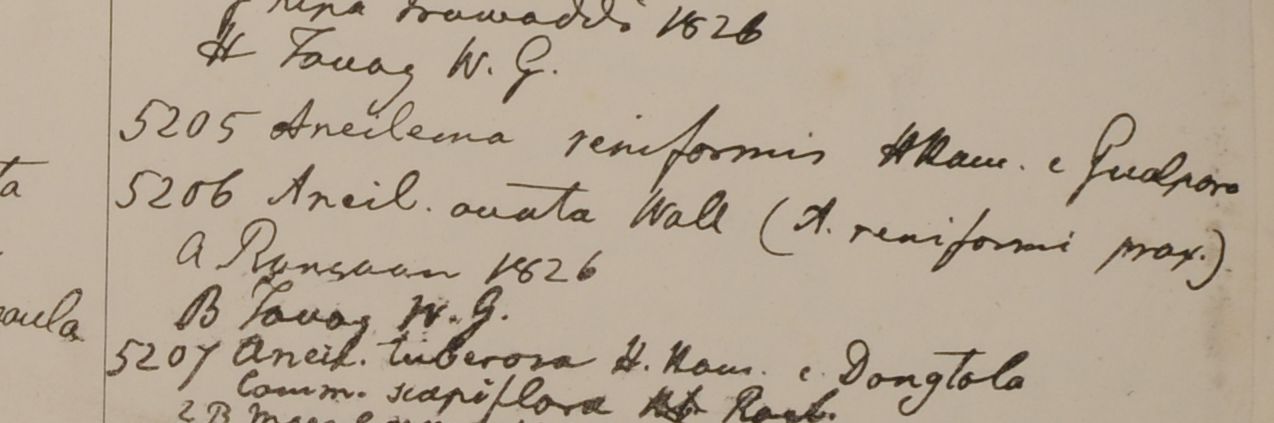 ripa Irawaddi 1826
H Tavoy W. G.
5205 Aneilema reniformis HHam. e Gualpara
ta
5206 Aneil. ovata Wall (A. reniformi prox.)
A Rangoon 1826
B Tavoy W. G.
5207 Aneil. tuberosa H. Ham. e Dongtola
Comm. scapiflora Hb Roxb.
2 B